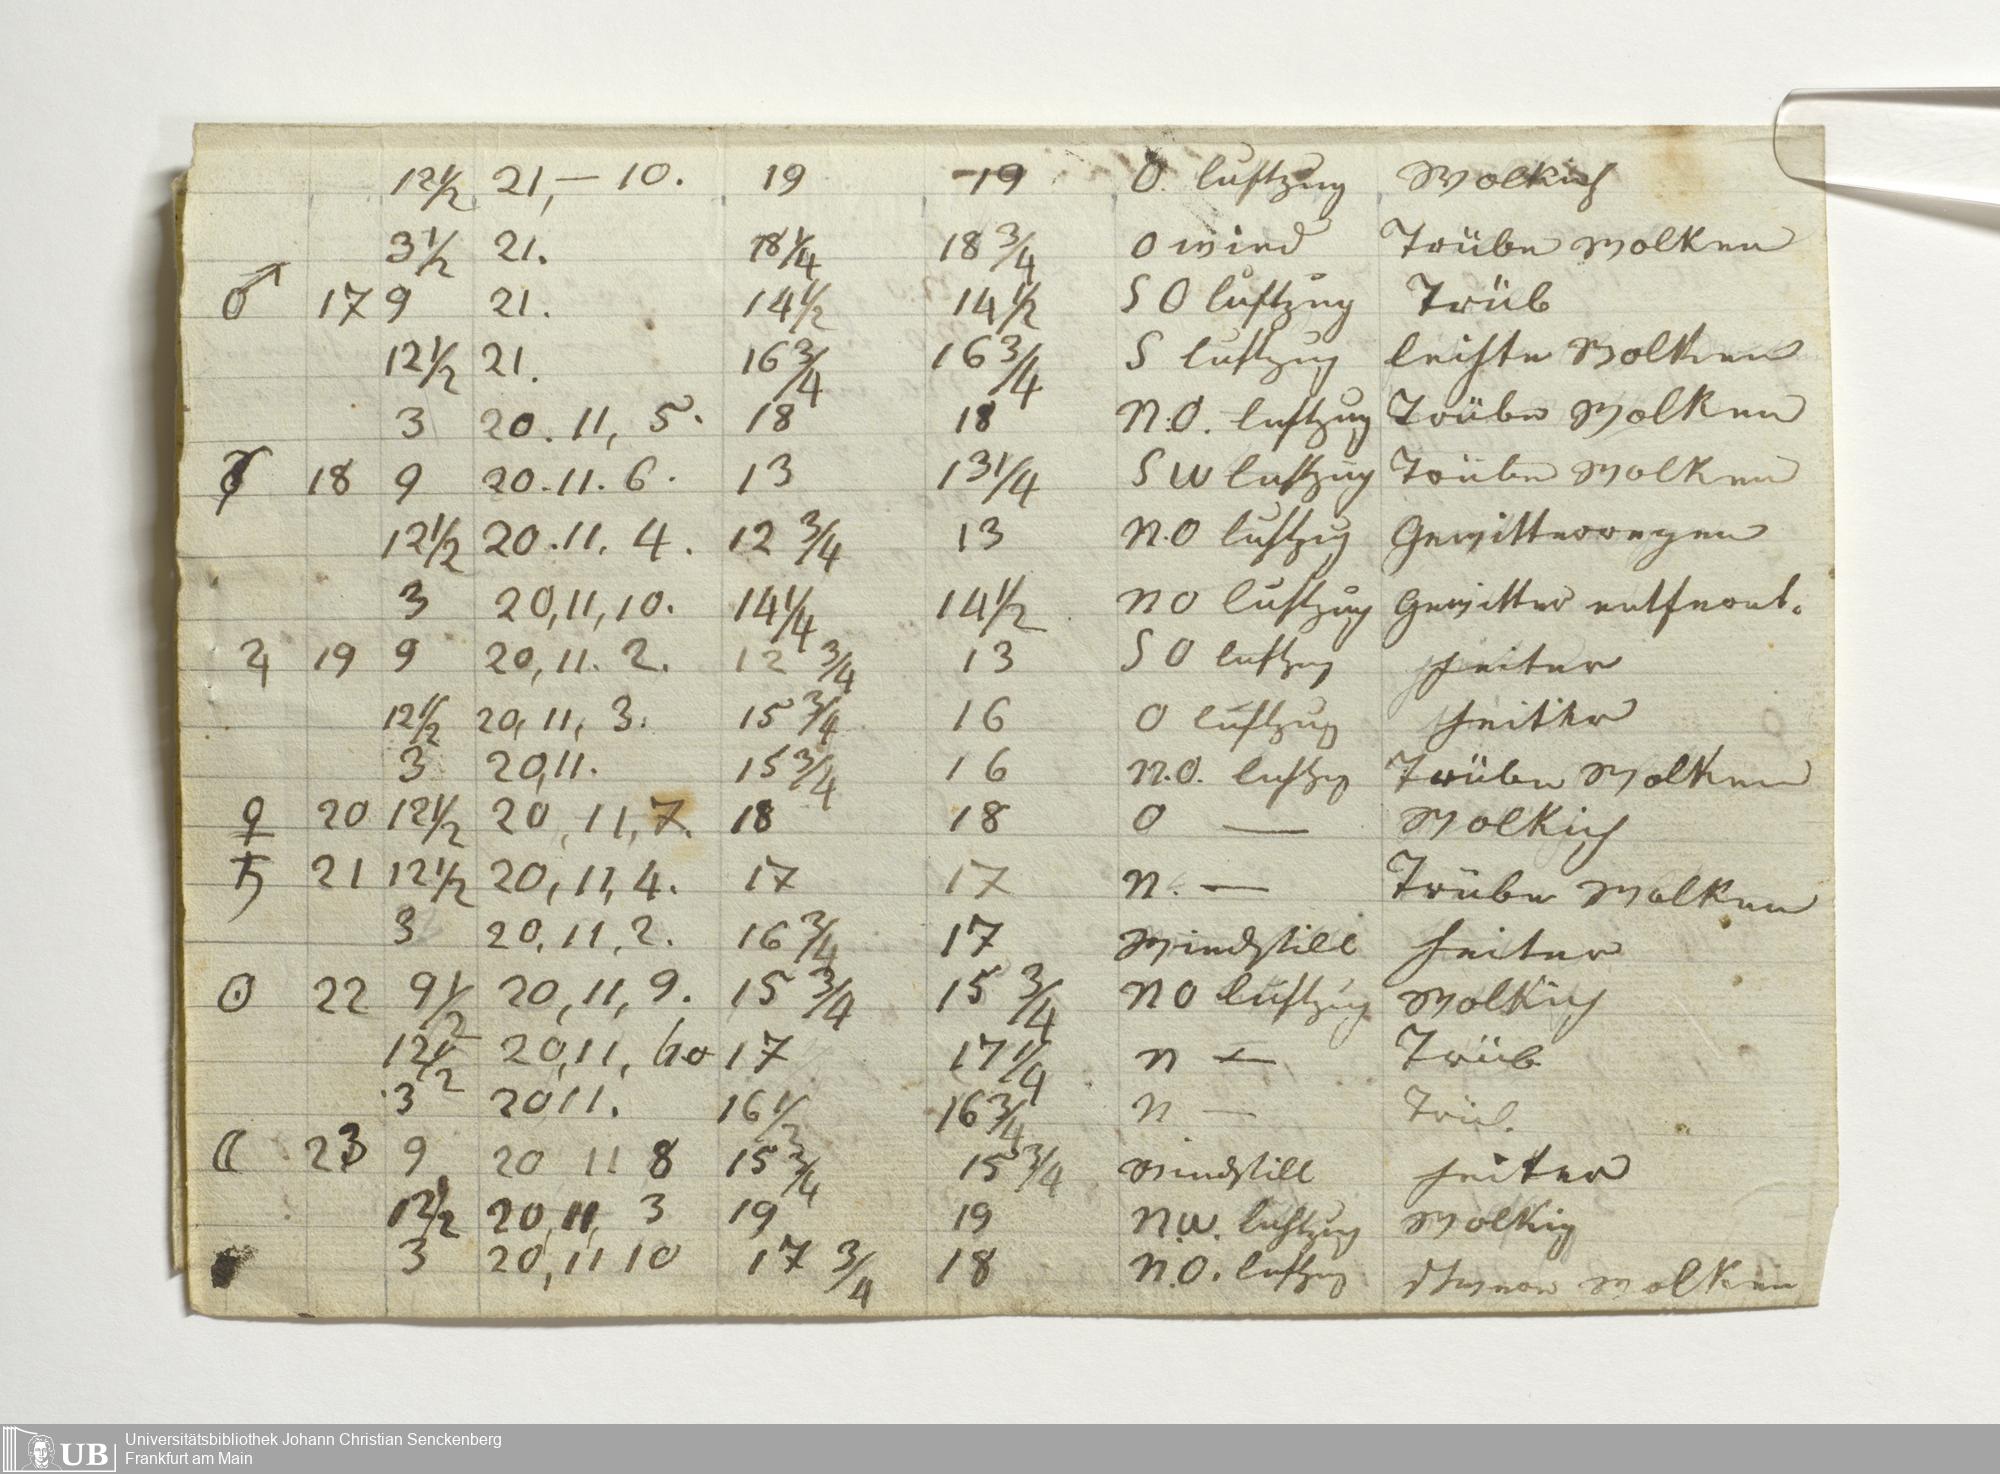 12 1/2 21, — 10. 19 19 O. luftzug Wolkich
3 1/2 21. 18 1/4 18 3/4 O wind Trübe Wolken
♂ 17 9 21. 14 1/2 14 1/2 S O luftzug Trüb
12 1/2 21. 16 3/4 16 3/4 S luftzug leichte Wolken
3 20. 11, 5. 18 18 N.O. luftzug Trübe Wolken
☿ 18 9 20. 11. 6. 13 13 1/4 S W luftzug Trübe Wolken
12 1/2 20. 11. 4. 12 3/4 13 N.O luftzug Gewitterregen
3 20, 11, 10. 14 1/4 14 1/2 N O luftzug Gewitter entfernt.
♃ 19 9 20, 11. 2. 12 3/4 13 S O luftzug heiter
12 1/2 20, 11, 3. 15 3/4 16 O luftzug heiter
3 20, 11. 15 3/4 16 N.O. luftzug Trübe Wolken
♀ 20 12 1/2 20, 11, 7. 18 18 O — Wolkich
♄ 21 12 1/2 20, 11, 4. 17 17 N. — Trübe Wolken
3 20, 11, 2. 16 3/4 17 Windstill heiter
☉ 22 9 1/2 20, 11, 9. 15 3/4 15 3/4 N O luftzug Wolkich
12 1/2 20, 11, 17 17 1/4 N — Trüb
3 20 11. 16 1/2 16 3/4 N — Trüb.
☾ 23 9 20 11 8 15 3/4 15 3/4 Windstill heiter
12 1/2 20, 11, 3 19 19 N.W. luftzug Wolkig
3 20, 11 10 17 3/4 18 N.O. luftzug Wolken
UB Universitätsbibliothek Johann Christian Senckenberg
Frankfurt am Main